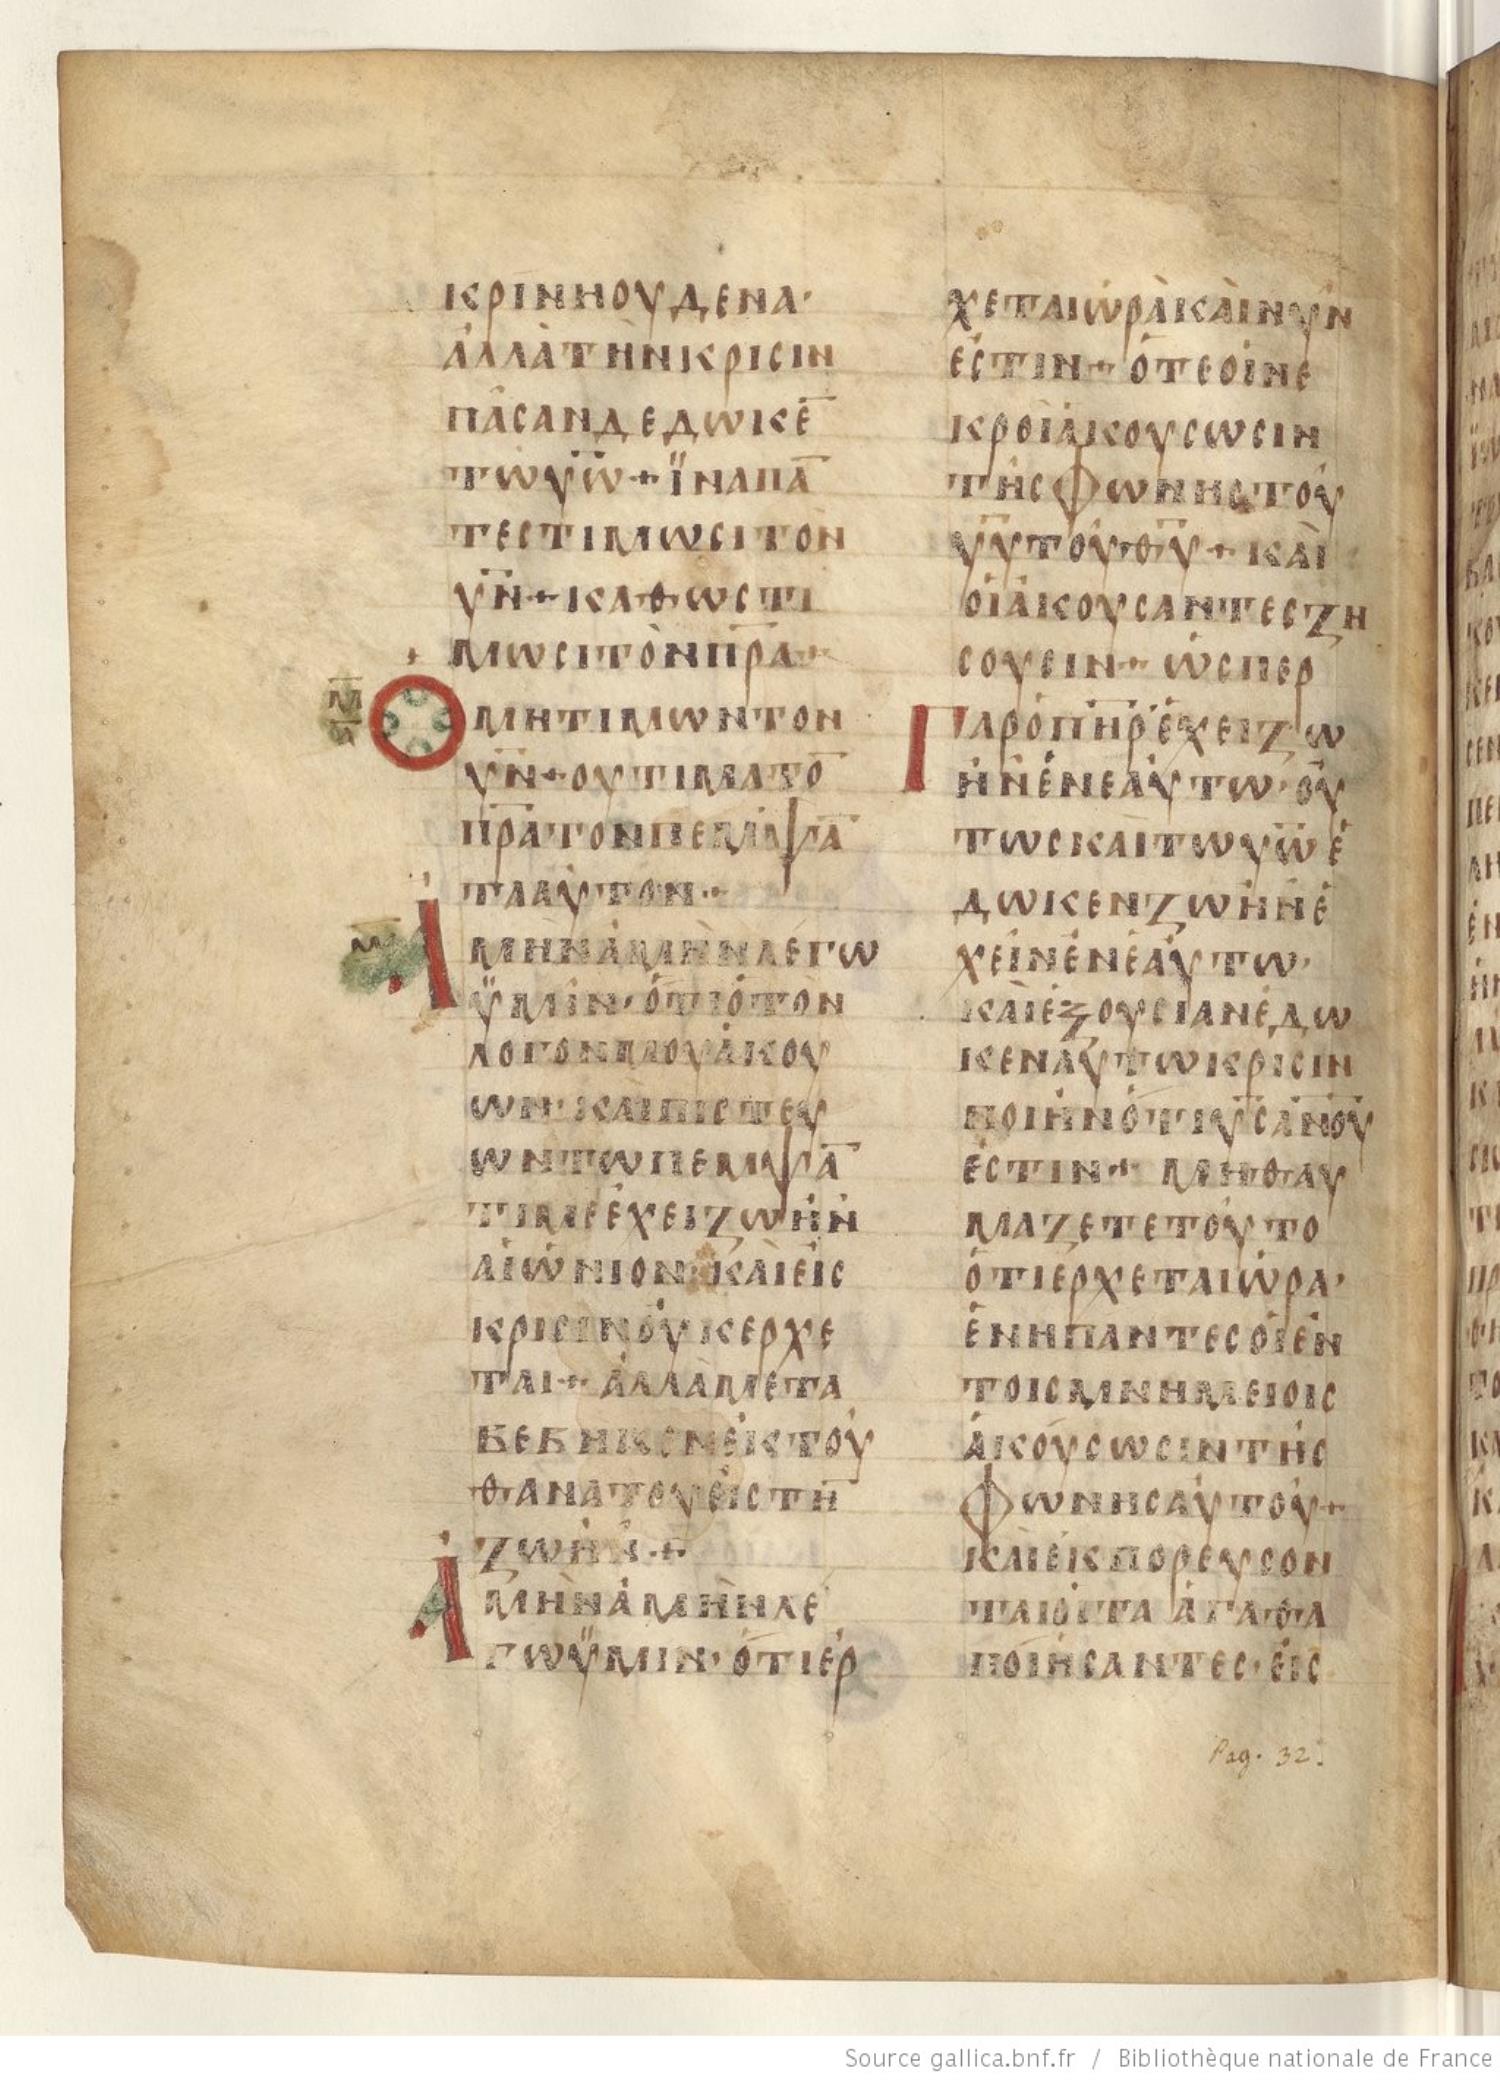 ΚΡΙΝΗΟΥΔΕΝΑ·
ἈΛΛᾺΤῊΝΚΡΙΣΙΝ
ΠΑΣΑΝΔΕΔΩΚΕ̅
ΤΩΥ̅Ω̅+ΪΝΑΠΑ̅
ΤΕΣΤΙΜΩΣΙΤΟΝ
Υ̅Ν̅+ΚΑΘΩΣΤΙ
ΜΩΣΙΤῸΝΠ̅Ρ̅Α̅+
ΟΜΗΤΙΜΩΝΤΟΝ
Μ̅Ϛ
Υ̅Ν̅+ΟΥΤΙΜΑΤΟ̅
Π̅Ρ̅Α̅ΤΟΝΠΕΜΨΑ̅
ΤΑΑΥΤΟΝ·+
ΑΜΗΝἈΜῊΝΛΕΓΩ
ΫΜΙΝ·ὉΤΙὉΤΟΝ
ΛΟΓΟΝΜΟΥἈΚΟΥ
ΩΝ·ΚΑῚΠΙΣΤΕΥ
ΩΝΤΩΠΕΜΨΑ̅
ΤΙΜΕἘΧΕΙΖΩῊΝ
ΑΙΩΝΙΟΝ·ΚΑῚΕἸΣ
ΚΡΙΣΙΝΟΥΚΕΡΧΕ
ΤΑΙ+ἈΛΛᾺΜΕΤΑ
ΒΕΒΗΚΕΝἘΚΤΟΥ
ΘΑΝΑΤΟΥΕἸΣΤΗ̅
ΖΩΗΝ·+
ΑΜῊΝἈΜῊΝΛΕ
ΓΩΫΜΙΝ·ὉΤΙΕΡ
ΧΕΤΑΙΩΡᾺΚΑῚΝΥΝ
ΕΣΤΙΝ+ὉΤΕΟἹΝΕ
ΚΡΟΙἈΚΟΥΣΩΣΙΝ
ΤΗΣΦΩΝΗΣΤΟΥ
Υ̅Υ̅ΤΟΥΘ̅Υ̅+ΚΑῚ
ΟἹἈΚΟΥΣΑΝΤΕΣΖΗ
ΣΟΥΣΙΝ+ὩΣΠΕΡ
ΓΑΡὉΠ̅Η̅Ρ̅ἘΧΕΙΖΩ
ΗΝἘΝΕΑΥΤΩ·ΟΥ
ΤΩΣΚΑΙΤΩΥ̅Ω̅Ε
ΔΩΚΕΝΖΩΗΝΕ
ΧΕΙΝἘΝΕΑΥΤΩ·
ΚΑῚἘΞΟΥΣΙΑΝΕΔΩ
ΚΕΝΑΥΤΩΚΡΙΣΙΝ
ΠΟΙΗΝὉΤΙΥ̅Σ̅Α̅Ν̅Ο̅Υ̅
ΕΣΤΙΝ+ΜΗΘΑΥ
ΜΑΖΕΤΕΤΟΥΤΟ
ὉΤΙΕΡΧΕΤΑΙΩΡΑ·
ἘΝΗΠΑΝΤΕΣΟἹἘΝ
ΤΟΙΣΜΝΗΜΕΙΟΙΣ
ἈΚΟΥΣΩΣΙΝΤΗΣ
ΦΩΝΗΣΑΥΤΟΥ+
ΚΑῚἘΚΠΟΡΕΥΣΟΝ
ΤΑΙὉΙΤΑἈΓΑΘΑ
ΠΟΙΗΣΑΝΤΕΣ·ΕἸΣ
Pag. 32.
Source gallica.bnf.fr / Bibliothèque nationale de France